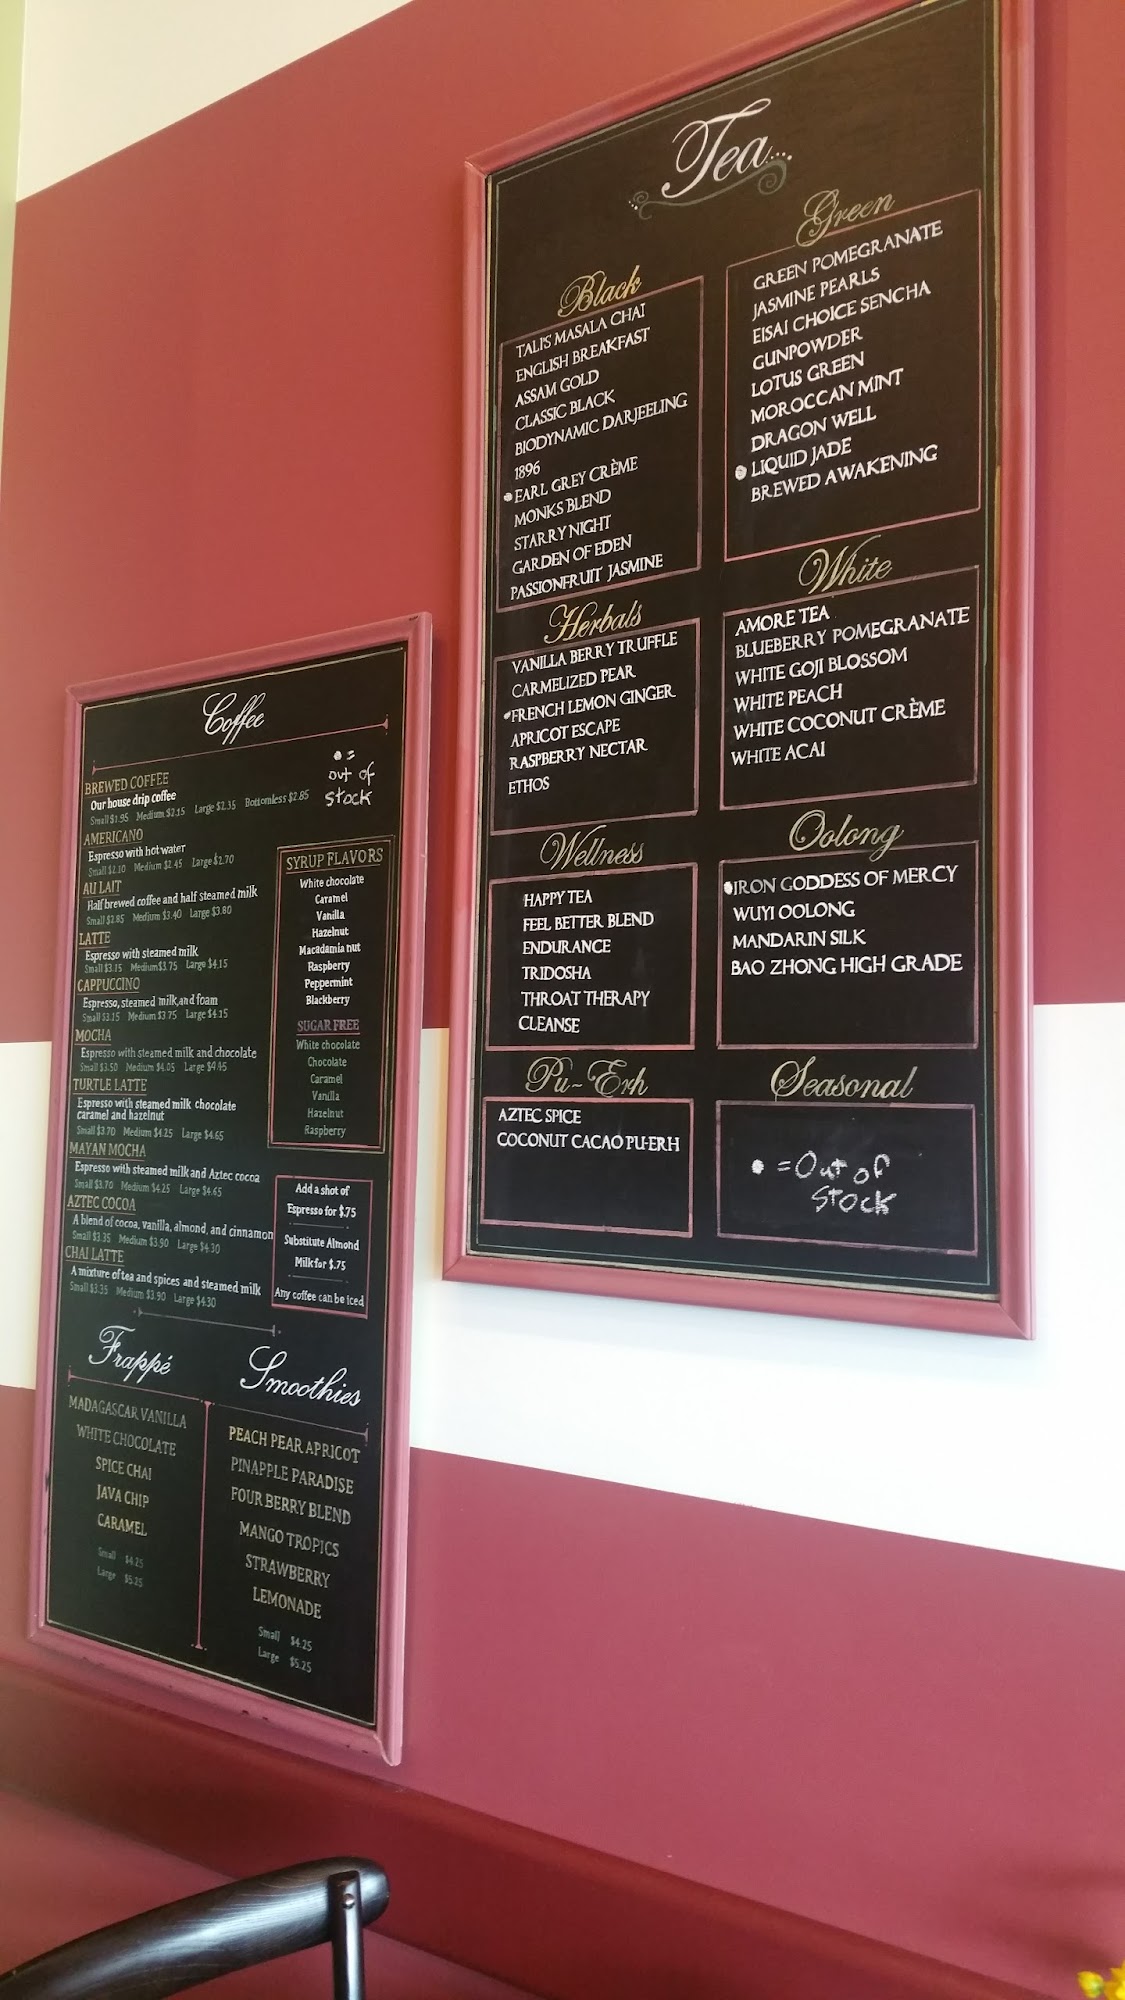 Coffee
● =
out of
stock
BREWED COFFEE
Our house drip coffee
Small $1.95 Medium $2.15 Large $2.35 Bottomless $2.85
AMERICANO
Espresso with hot water
Small $2.10 Medium $2.45 Large $2.70
AU LAIT
Half brewed coffee and half steamed milk
Small $2.85 Medium $3.40 Large $3.80
LATTE
Espresso with steamed milk
Small $3.15 Medium $3.75 Large $4.15
CAPPUCCINO
Espresso, steamed milk, and foam
Small $3.15 Medium $3.75 Large $4.15
MOCHA
Espresso with steamed milk and chocolate
Small $3.50 Medium $4.05 Large
TURTLE LATTE
Espresso with steamed milk chocolate
caramel and hazelnut
Small $3.70 Medium $4.25 Large $4.65
MAYAN MOCHA
Espresso with steamed milk and Aztec cocoa
Small $3.70 Medium $4.25 Large $4.65
AZTEC COCOA
A blend of cocoa, vanilla, almond, and cinnamon
Small $3.35 Medium $3.90 Large $4.30
CHAI LATTE
A mixture of tea and spices and steamed milk
Small $3.35 Medium $3.90 Large $4.30
SYRUP FLAVORS
White chocolate
Caramel
Vanilla
Hazelnut
Macadamia nut
Raspberry
Peppermint
Blackberry
SUGAR FREE
White chocolate
Chocolate
Caramel
Vanilla
Hazelnut
Raspberry
Add a shot of
Espresso for $.75
Substitute Almond
Milk for $.75
Any coffee can be iced
Frappé
MADAGASCAR VANILLA
WHITE CHOCOLATE
SPICE CHAI
JAVA CHIP
CARAMEL
Small $4.25
Large $5.25
Smoothies
PEACH PEAR APRICOT
PINAPPLE PARADISE
FOUR BERRY BLEND
MANGO TROPICS
STRAWBERRY
LEMONADE
Small $4.25
Large $5.25
Tea...
Black
TALI'S MASALA CHAI
ENGLISH BREAKFAST
ASSAM GOLD
CLASSIC BLACK
BIODYNAMIC DARJEELING
1896
● EARL GREY CRÈME
MONKS BLEND
STARRY NIGHT
GARDEN OF EDEN
PASSIONFRUIT JASMINE
Herbals
VANILLA BERRY TRUFFLE
CARMELIZED PEAR
● FRENCH LEMON GINGER
APRICOT ESCAPE
RASPBERRY NECTAR
ETHOS
Wellness
HAPPY TEA
FEEL BETTER BLEND
ENDURANCE
TRIDOSHA
THROAT THERAPY
CLEANSE
Pu-Erh
AZTEC SPICE
COCONUT CACAO PU-ERH
Green
GREEN POMEGRANATE
JASMINE PEARLS
EISAI CHOICE SENCHA
GUNPOWDER
LOTUS GREEN
MOROCCAN MINT
DRAGON WELL
● LIQUID JADE
BREWED AWAKENING
White
AMORE TEA
BLUEBERRY POMEGRANATE
WHITE GOJI BLOSSOM
WHITE PEACH
WHITE COCONUT CRÈME
WHITE ACAI
Oolong
● IRON GODDESS OF MERCY
WUYI OOLONG
MANDARIN SILK
BAO ZHONG HIGH GRADE
Seasonal
● = Out of
stock